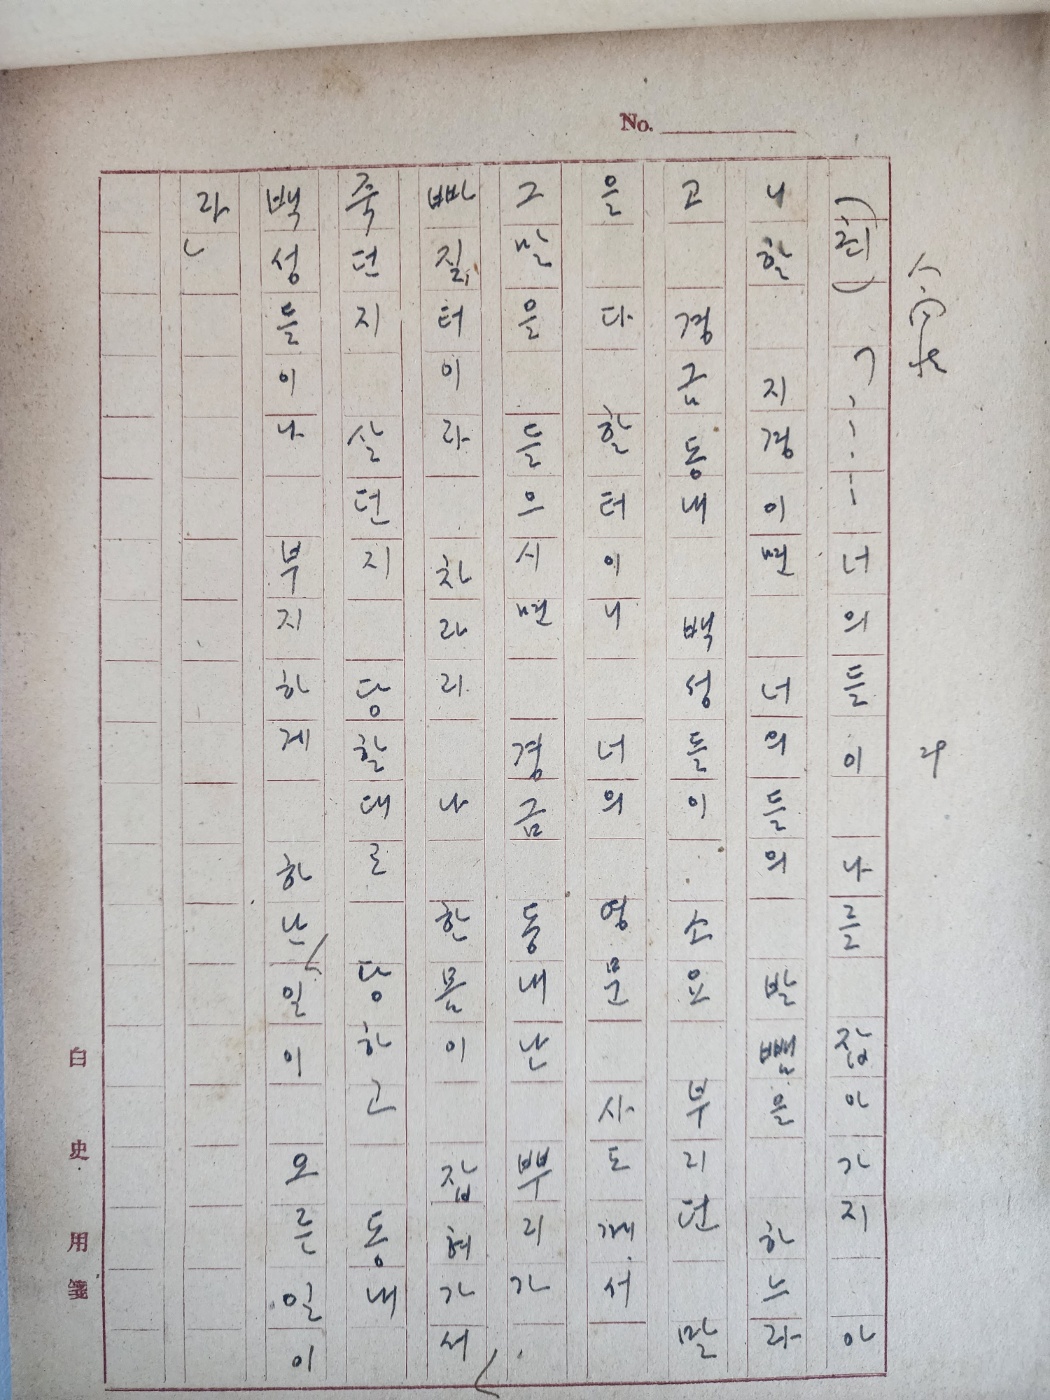 No.
(최) ?····· 너의들이 나를 잡아가지 아
니할 지경이면 너의들의 발뺌을 하느라
고 경금동내 백성들이 소요부리던 말
을 다 할터이니 너의 영문 사도깨서
그말을 들으시면 경금 동내난 뿌리가
빠질터이라 찰라리 나 한몸이 잡혀가서
죽던지 살던지 당할대로 당하고 동내
백성들이나 부지하게 하난 일이 오른일이
라
白史用箋